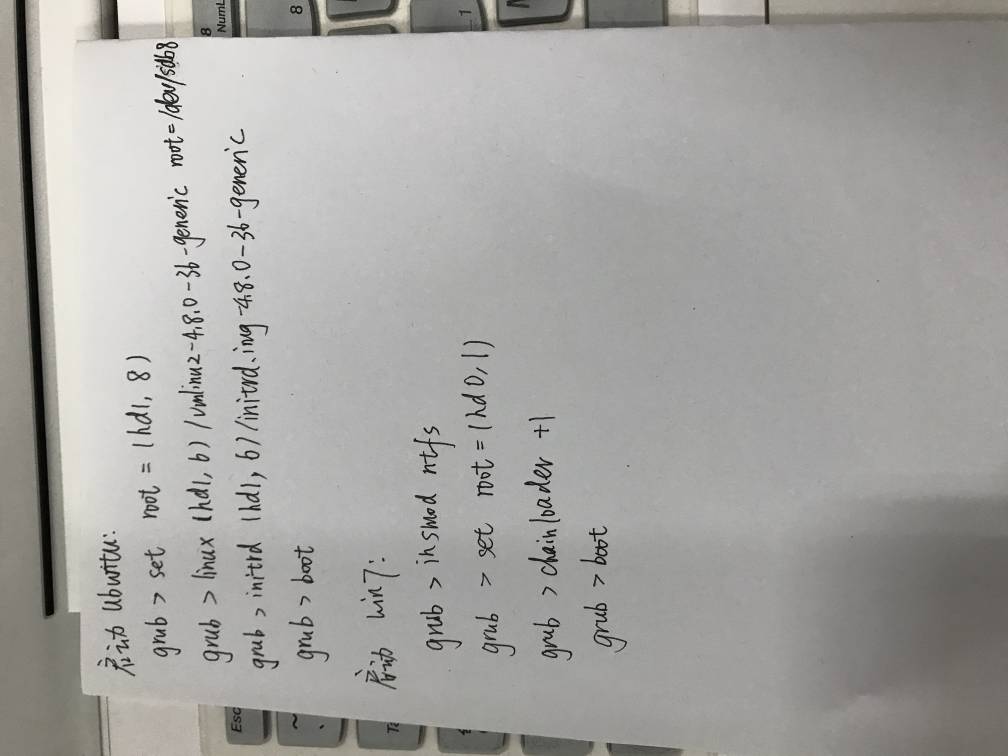 启动 Ubuntu:
grub > set root = (hd1, 8)
grub > linux (hd1, 6) /vmlinuz-4.8.0-36-generic root=/dev/sdb8
grub > initrd (hd1, 6) /initrd.img-4.8.0-36-generic
grub > boot
启动 win7:
grub > insmod ntfs
grub > set root = (hd0, 1)
grub > chainloader +1
grub > boot
Esc
~
8
NumL
8
1